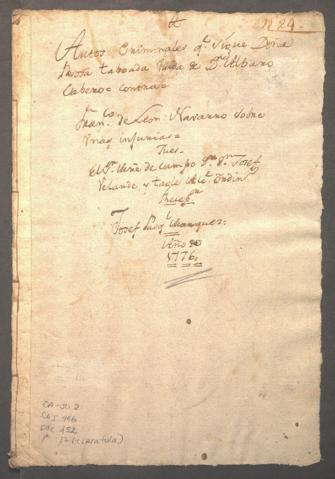 N 24
Autos Criminales q.e Sigue Doña
Taboada de D.n Albano
Cabero contra
Fran.co de Leon Navarro Sobre
unas injurias=
Jues
El S.r Mrñe de Campo D.n Josef
Velarde, y Tagle Alc.e Ordin.o
Josef Luis Marquez:
Año de
1776,,
CA-JO 2
CAJ 196
DOC 452
f 17 (+ caratula)